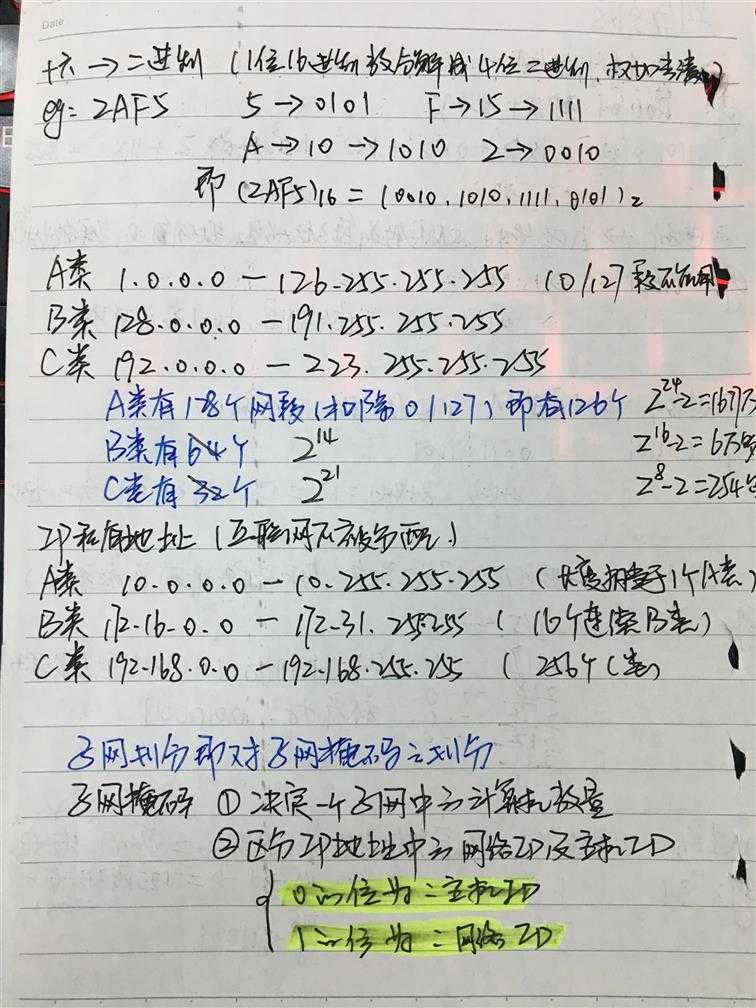 Date
十六 → 二进制 (1位16进制数分解成4位二进制,
eg: 2AF5 5→0101 F→15→1111
A→10→1010 2→0010
即 (2AF5)16 = (0010,1010,1111,0101)2
A类 1.0.0.0 - 126.255.255.255 (0/127 段不应用
B类 128.0.0.0 - 191.255.255.255
C类 192.0.0.0 - 223.255.255.255
A类有128个网段(扣除0/127)即有126个 2^24-2=1677万
B类有64个 2^14 2^16-2=6万多
C类有32个 2^21 2^8-2=254个
IP私有地址 (互联网不被分配)
A类 10.0.0.0 - 10.255.255.255 (长度相当于1个A类)
B类 172.16.0.0 - 172.31.255.255 (16个连续B类)
C类 192.168.0.0 - 192.168.255.255 (256个C类)
子网划分即对子网掩码之划分
子网掩码 ① 决定一个子网中的计算机数量
② 区分IP地址中的网络ID及主机ID
0的位为:主机ID
1的位为:网络ID